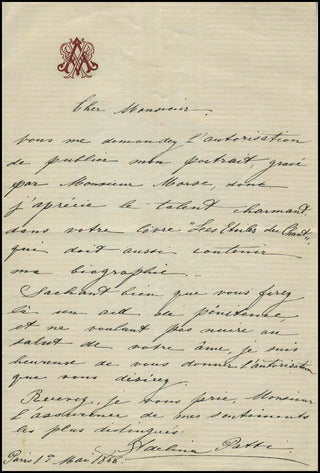 Cher Monsieur,
vous me demandez l'autorisation
de publier mon portrait, gravé
par Monsieur Morse, dont
j'aprécie le talent charmant,
dans votre livre "Les Etoiles du Chant",
qui doit aussi contenir
ma biographie.
Sachant bien que vous ferez
là un acte de pénitence,
et ne voulant pas nuire au
salut de votre âme, je suis
heureuse de vous donner l'autorisation
que vous désirez.
Recevez, je vous prie, Monsieur
l'assurance de mes sentiments
les plus distingués
Adelina Patti
Paris 1º Mai,